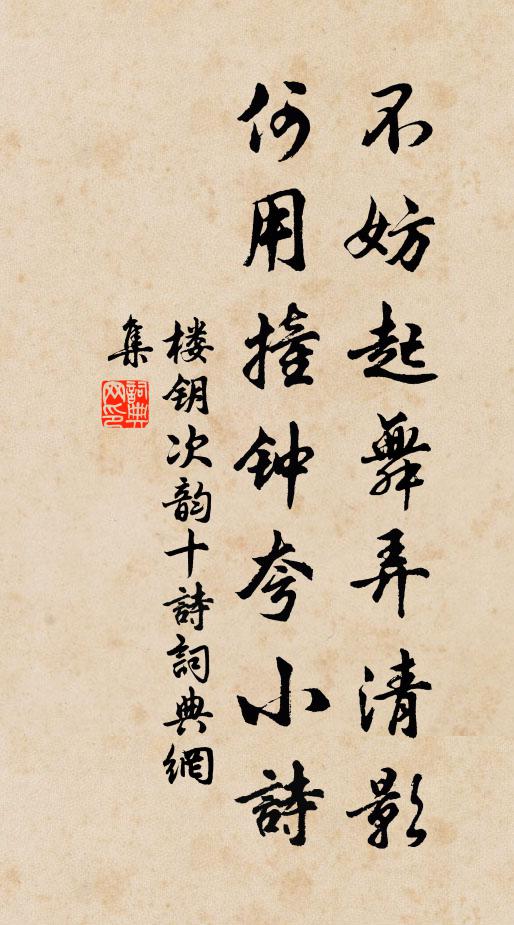 不妨起舞弄清影
何用撞钟夸小詩
楼钥次韵十詩詞典網
集
詞典网印